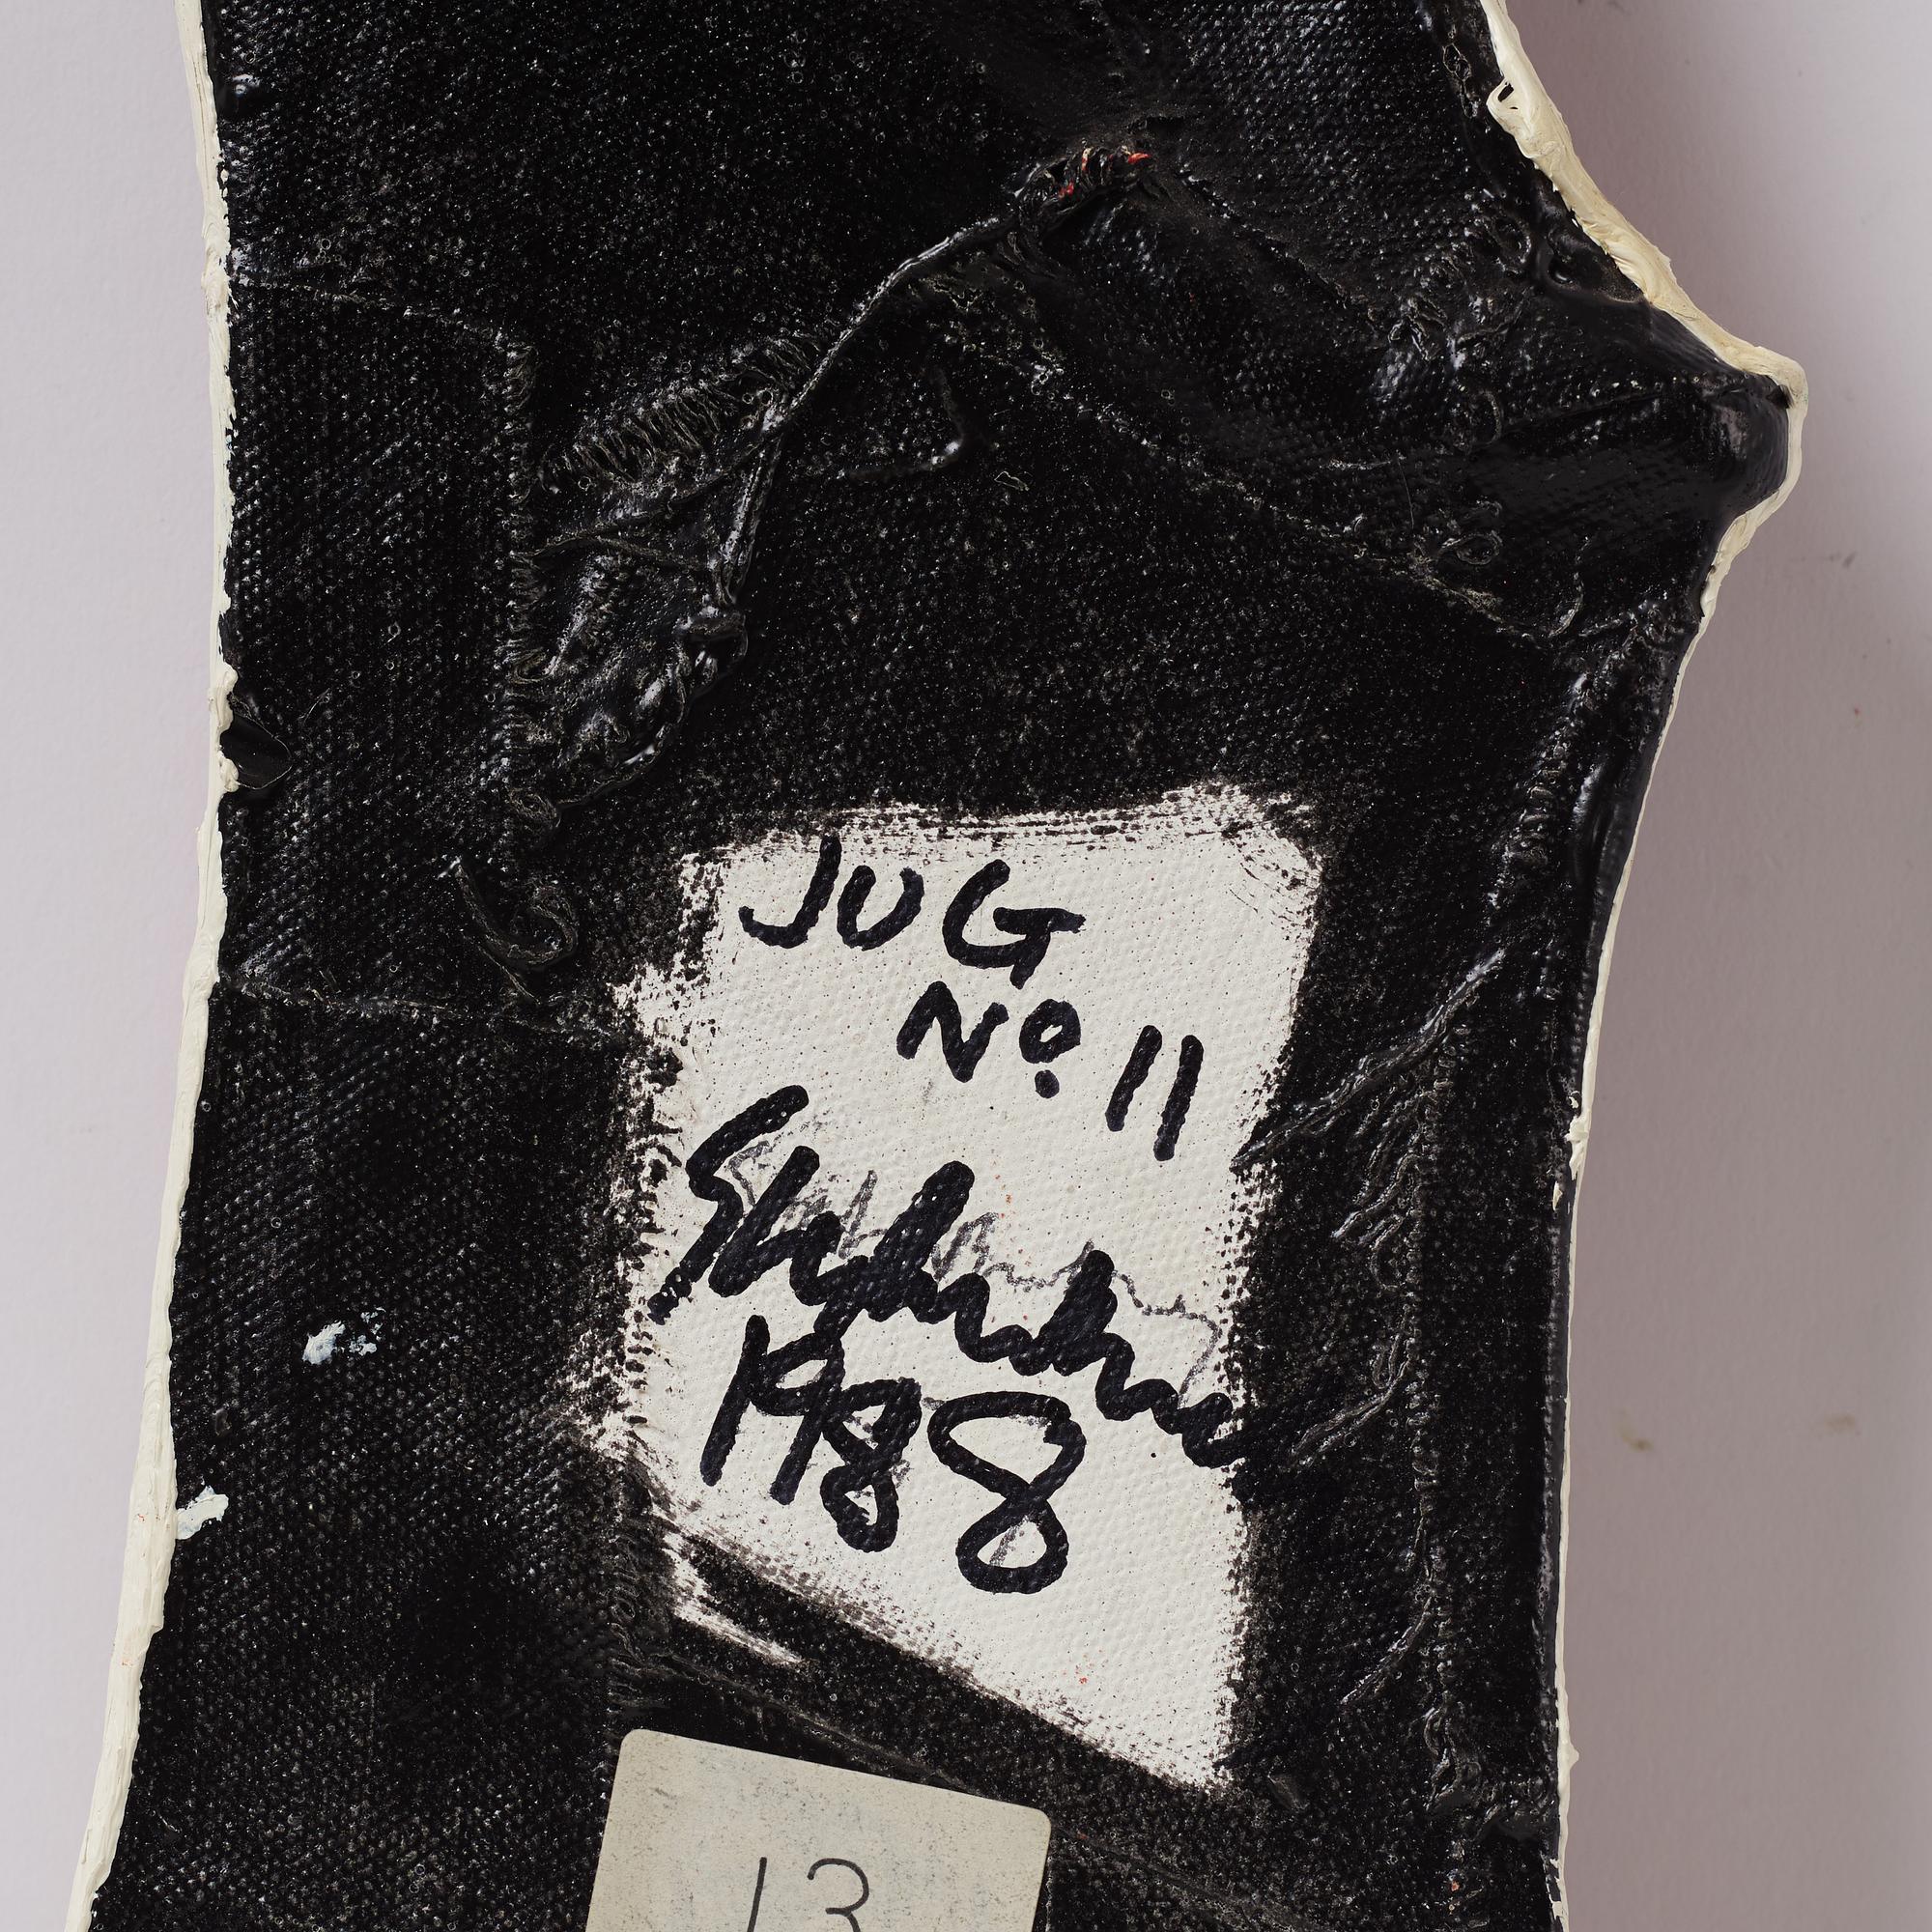 JUG
No. 11
1988
13